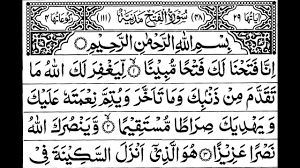 اٰیاتها ٢٩ (٤٨) سُوۡرَةُ الۡفَتۡحِ مَدَنِيَّةٌ (١١١) رکوعاتها ٤
بِسۡمِ اللّٰهِ الرَّحۡمٰنِ الرَّحِيۡمِ
اِنَّا فَتَحۡنَا لَكَ فَتۡحًا مُّبِيۡنًا ۙ‏﴿۱﴾ لِّيَغۡفِرَ لَكَ اللّٰهُ مَا
تَقَدَّمَ مِنۡ ذَنۡۢبِكَ وَمَا تَاَخَّرَ وَيُتِمَّ نِعۡمَتَهٗ عَلَيۡكَ
وَيَهۡدِيَكَ صِرَاطًا مُّسۡتَقِيۡمًا ۙ‏﴿۲﴾ وَّ يَنۡصُرَكَ اللّٰهُ
نَصۡرًا عَزِيۡزًا‏ ﴿۳﴾ هُوَ الَّذِىۡۤ اَنۡزَلَ السَّكِيۡنَةَ فِىۡ